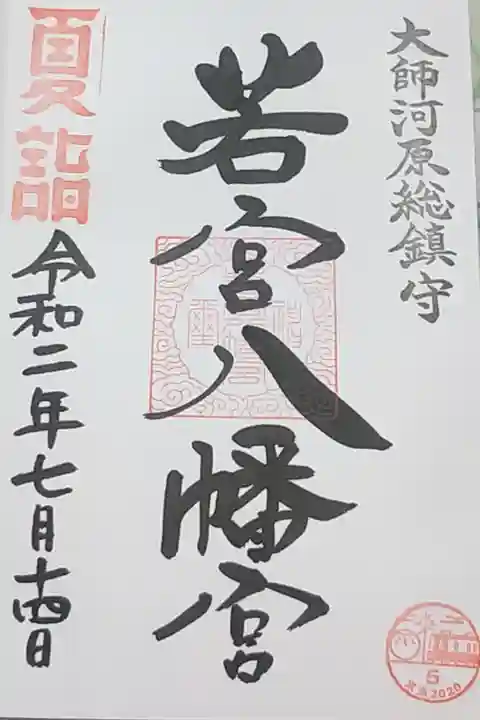 大師河原総鎮守
若宮八幡宮
夏詣
令和二年七月十四日
5
2020